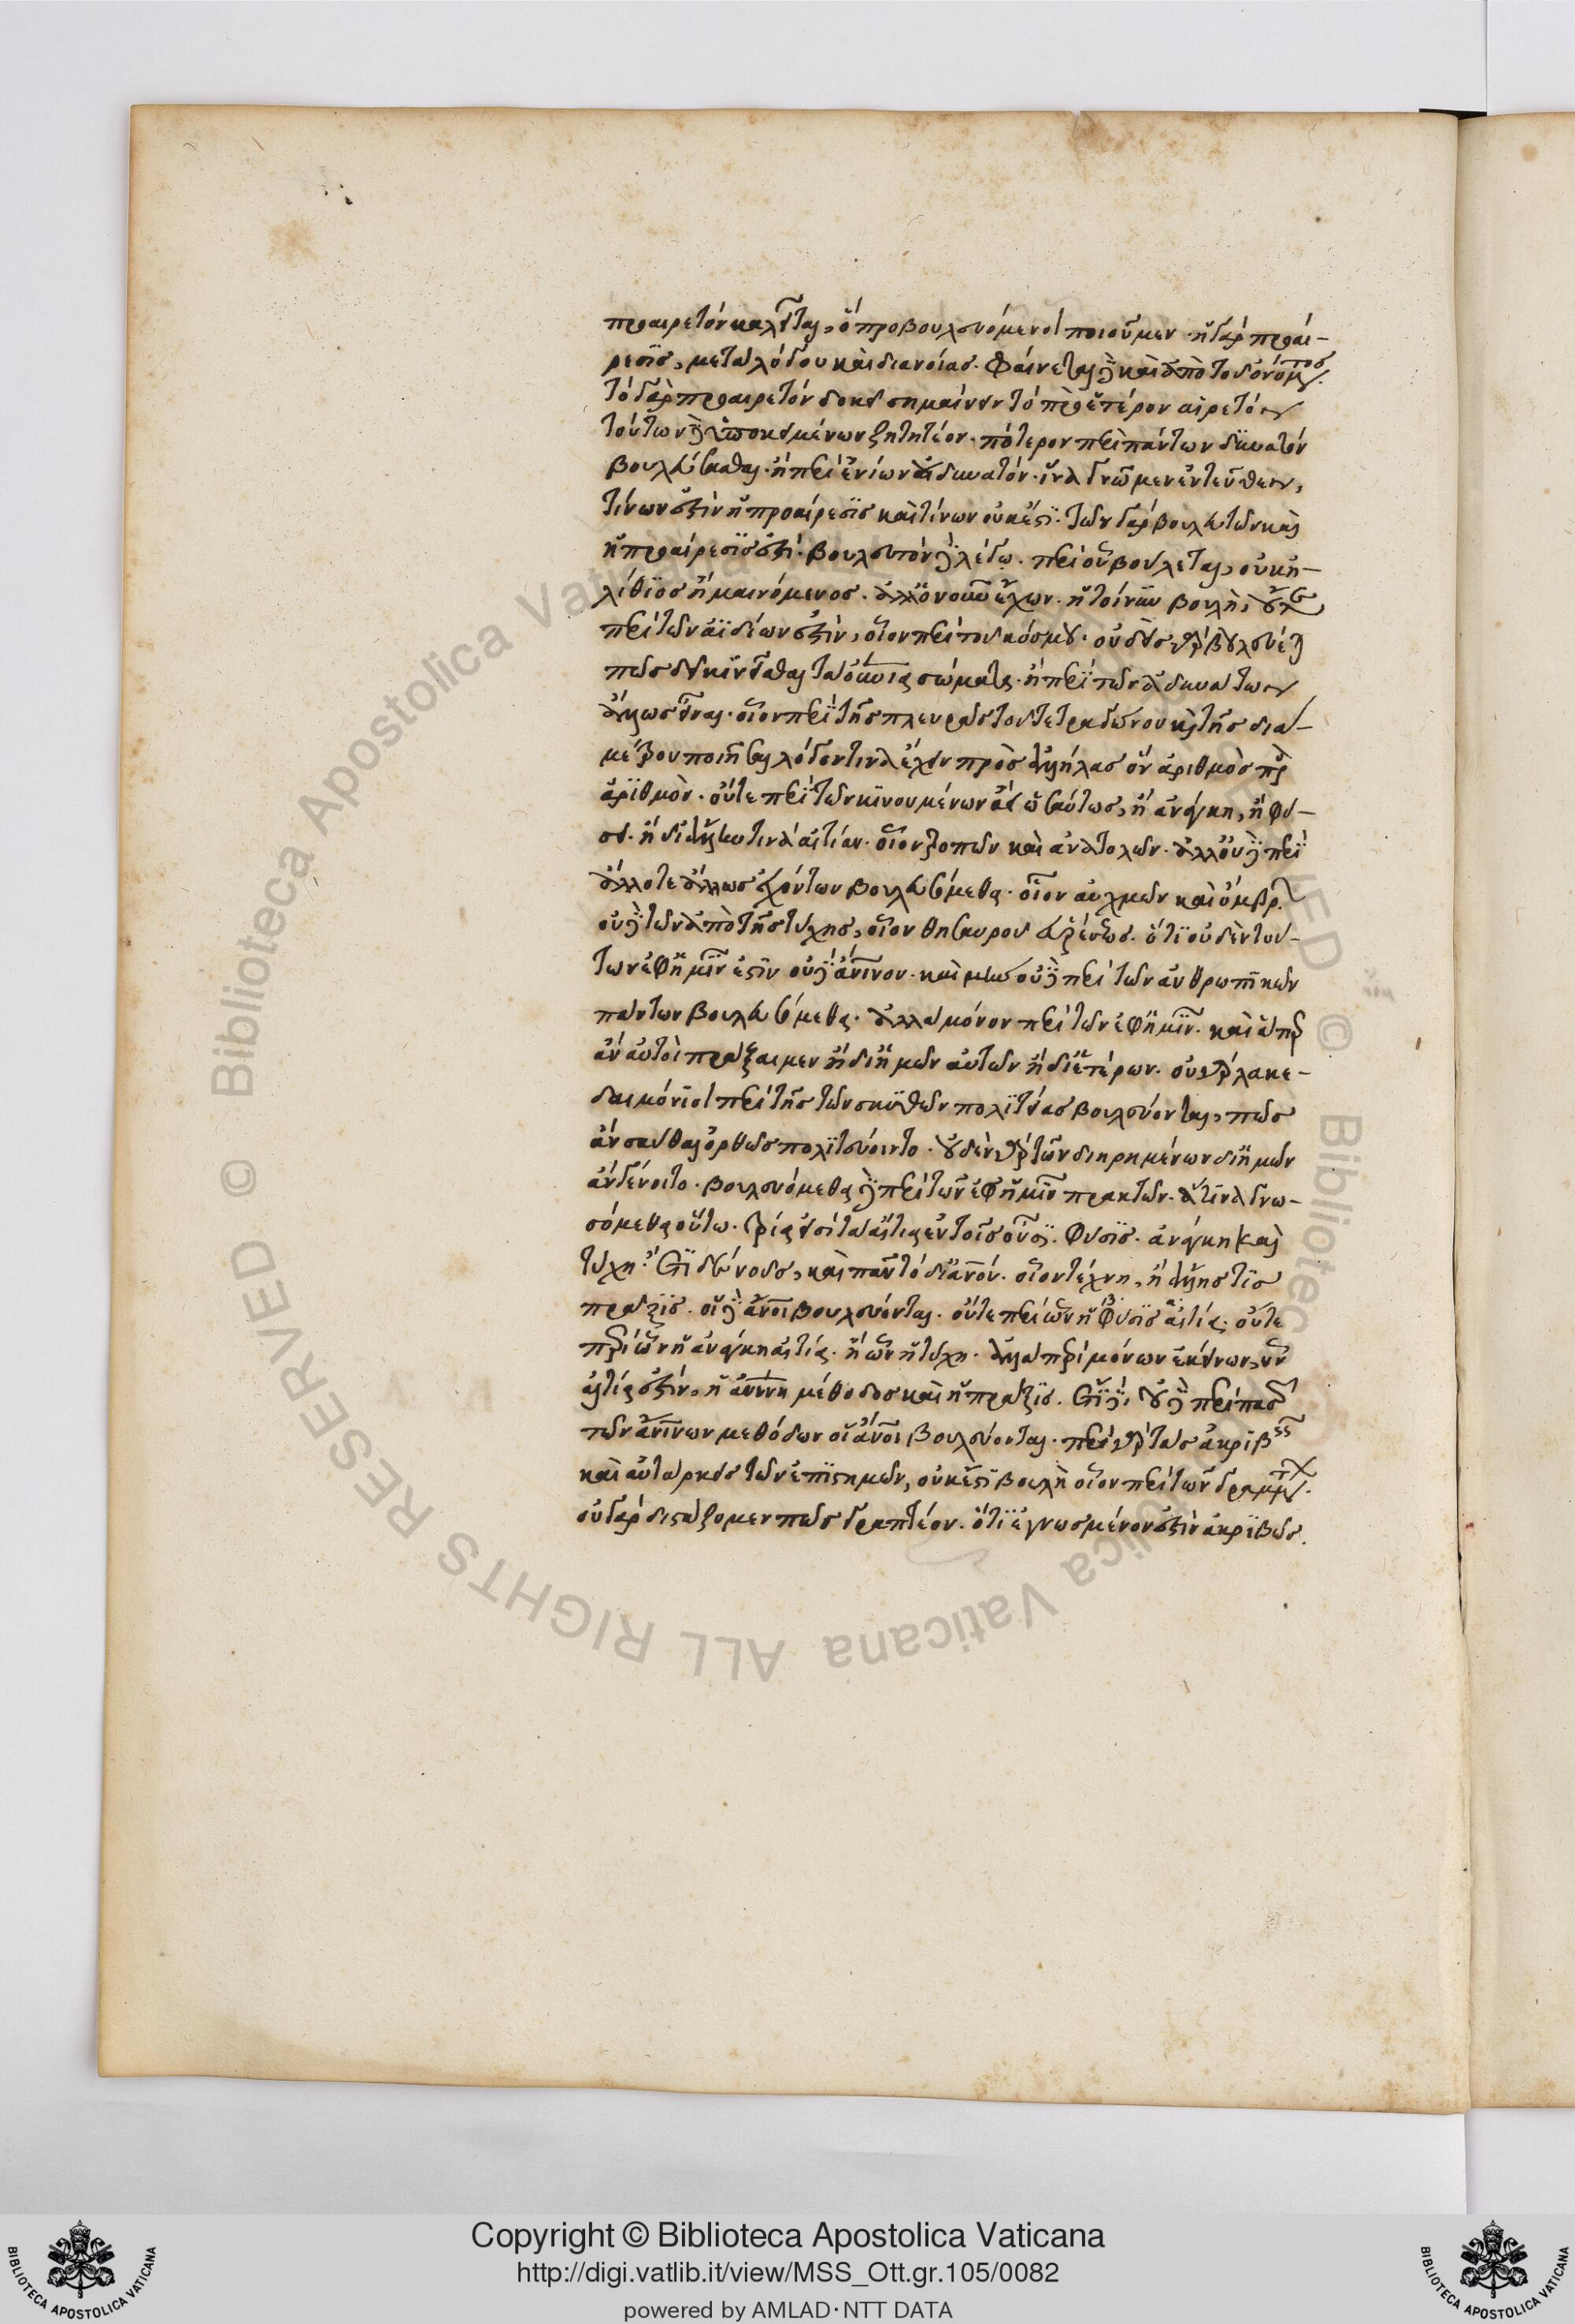 προαιρετὸν καλεῖται, ὃ προβουλευόμενοι ποιοῦμεν· ἡ γὰρ προαί-
ρεσις, μετὰ λόγου καὶ διανοίας. φαίνεται δὲ καὶ ἀπὸ τοῦ ὀνόματος.
τὸ γὰρ προαιρετὸν δοκεῖ σημαίνειν τὸ πρὸ ἑτέρου αἱρετόν
τούτων δὲ ὑποκειμένων ζητητέον· πότερον περὶ πάντων δυνατὸν
βουλεύσασθαι· ἢ περὶ ἐνίων ἀδυνατόν· ἵνα γνῶμεν ἐντεῦθεν,
τίνων ἐστὶν ἡ προαίρεσις καὶ τίνων οὐκ ἔστι· τῶν γὰρ βουλευτῶν καὶ
ἡ προαίρεσις ἐστί· βουλευτὸν δὲ λέγω· περὶ οὗ βούλεται, οὐκ ἠ-
λίθιος ἢ μαινόμενος· ἀλλ' ὁ νοῦν ἔχων· ἡ τοίνυν βουλὴ, οὔτε
περὶ τῶν ἀϊδίων ἐστὶν, οἷον περὶ τοῦ κόσμου· οὐδεὶς γὰρ βουλεύεται
πῶς δεῖ κινεῖσθαι τὰ οὐράνια σώματα· ἢ περὶ τῶν ἀδυνάτων
ἄλλως εἶναι· οἷον περὶ τῆς πλευρᾶς τοῦ τετραγώνου καὶ τῆς δια-
μέτρου ποιῆσαι λόγον τινὰ ἔχειν πρὸς ἀλλήλας ὃν ἀριθμὸς πρὸς
ἀριθμὸν· οὔτε περὶ τῶν κινουμένων ἀεὶ ὡσαύτως, ἢ ἀνάγκη, ἢ φύ-
σει· ἢ δι' ἄλλην τινὰ αἰτίαν· οἷον τροπῶν καὶ ἀνατολῶν· ἀλλ' οὐδὲ περὶ
ἄλλοτε ἄλλως ἐχόντων βουλευσόμεθα· οἷον αὐχμῶν καὶ ὄμβρων
οὐδὲ τῶν ἀπὸ τῆς τύχης, οἷον θησαυροῦ εὑρέσεως· ὅτι οὐδὲν τού-
των ἐφ' ἡμῖν ἐστιν οὐδὲ ἀνθρώπινον· καὶ μὴν οὐδὲ περὶ τῶν ἀνθρωπικῶν
πάντων βουλευσόμεθα· ἀλλὰ μόνον περὶ τῶν ἐφ' ἡμῖν· καὶ ἅπερ
ἂν αὐτοὶ πράξαιμεν ἢ δι' ἡμῶν αὐτῶν ἢ δι' ἑτέρων· οὐ γὰρ λακε-
δαιμόνιοι περὶ τῆς τῶν σκυθῶν πολιτείας βουλεύονται, πῶς
ἂν σκύθαι ὀρθῶς πολιτεύοιντο· οὐδὲν γὰρ τῶν διῃρημένων δι' ἡμῶν
ἂν γένοιτο· βουλευόμεθα δὲ περὶ τῶν ἐφ' ἡμῖν πρακτῶν· ἅτινα γνω-
σόμεθα οὕτω· τρία εἰσὶ τὰ αἴτια ἐν τοῖς οὖσι· φύσις· ἀνάγκη καὶ
τύχη· ἔτι δὲ νοῦς, καὶ πᾶν τὸ δι' ἀνθρώπου· οἷον τέχνη, ἢ ἄλλη τις
πρᾶξις· οἱ δὲ ἄνθρωποι βουλεύονται· οὔτε περὶ ὧν ἡ φύσις αἰτία· οὔτε
περὶ ὧν ἡ ἀνάγκη αἰτία· ἢ ὧν ἡ τύχη· ἀλλὰ περὶ μόνων ἐκείνων, ὧν
αἰτία ἐστὶν, ἡ ἀνθρωπίνη μέθοδος καὶ ἡ πρᾶξις· οὐδὲ περὶ πασῶν
τῶν ἀνθρωπίνων μεθόδων οἱ ἄνθρωποι βουλεύονται· περὶ γὰρ τὰς ἀκριβεῖς
καὶ αὐτάρκεις τῶν ἐπιστημῶν, οὐκ ἔστι βουλὴ οἷον περὶ τῶν γραμμάτων·
οὐ γὰρ διστάζομεν πῶς γραπτέον· ὅτι ἐγνωσμένον ἐστὶν ἀκριβῶς.
Copyright © Biblioteca Apostolica Vaticana
http://digi.vatlib.it/view/MSS_Ott.gr.105/0082
powered by AMLAD·NTT DATA